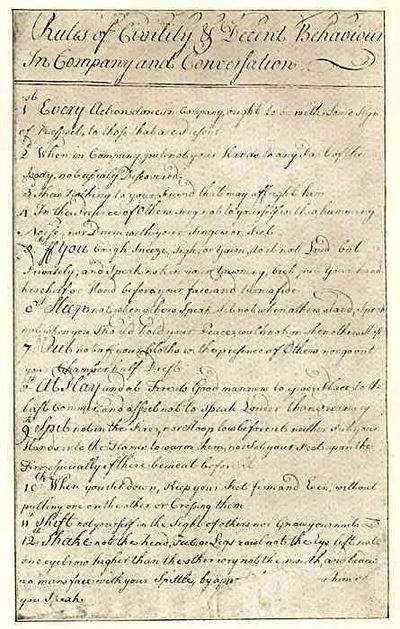 Rules of Civility & Decent Behaviour
In Company and Conversation
1st Every Action done in Company, ought to be with Some Sign
of Respect, to those that are Present
2d When in Company, put not your Hands to any Part of the
Body, not usualy Discovered
3 Shew Nothing to your Freind that may affright him
4 In the Presence of Others Sing not to yourself with a humming
Noise, nor Drum with your Fingers or Feet
5 If You Cough, Sneeze, Sigh, or Yawn, do it not Loud but
Privately; and Speak not in your Yawning, but put Your hand
or Hand before your face and turn aside
6th Sleep not when others Speak, Sit not when others stand, Speak
not when you Should hold your Peace, walk not on when others Stop
7th Put not off your Cloths in the presence of Others, nor go out
your Chamber half Drest
8th At Play and at Fire its Good manners to give Place to the
last Commer, and affect not to Speak Louder than ordinary
9th Spit not in the Fire, nor Stoop low before it neither Put your
Hands into the Flames to warm them, nor Set your Feet upon the
Fire especially if there be meat before it
10th When you Sit down, Keep your Feet firm and Even, without
putting one on the other or Crossing them
11th Shift not yourself in the Sight of others nor Gnaw your nails
12th Shake not the head, Feet, or Legs rowl not the Eys lift not
one eyebrow higher than the other wry not the mouth, and bedew
no mans face with your Spittle, by app him
you Speak